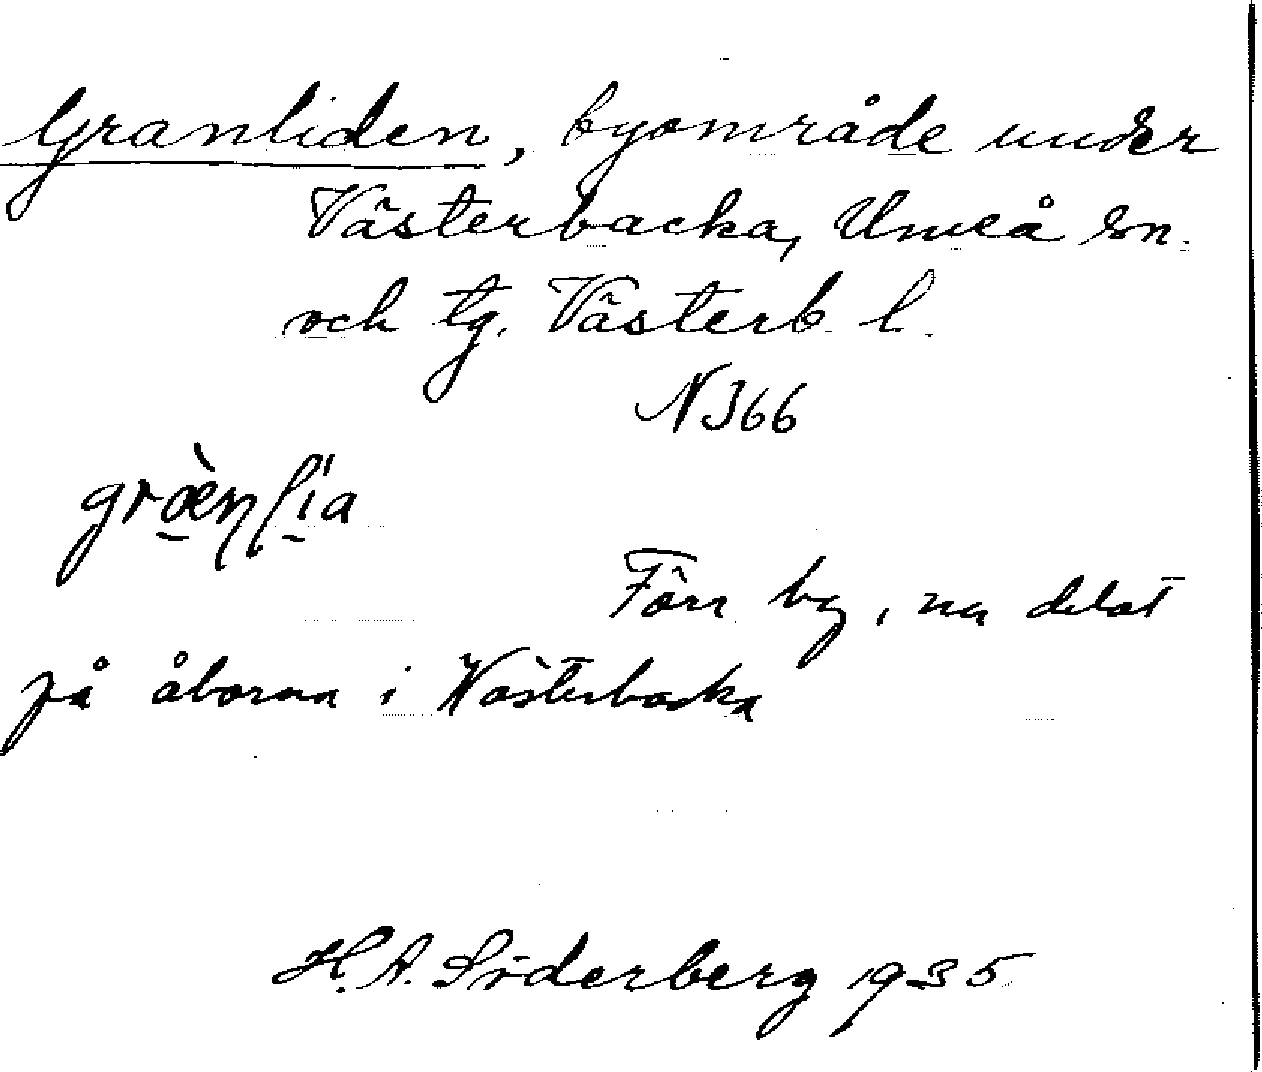 Granliden, byområde under
Västerbacka, Umeå sn.
och tg. Västerb. l.
N 366
græ̀nlia
Förr by, nu delat
på åborna i Västerbacka
H. A. Söderberg 1935